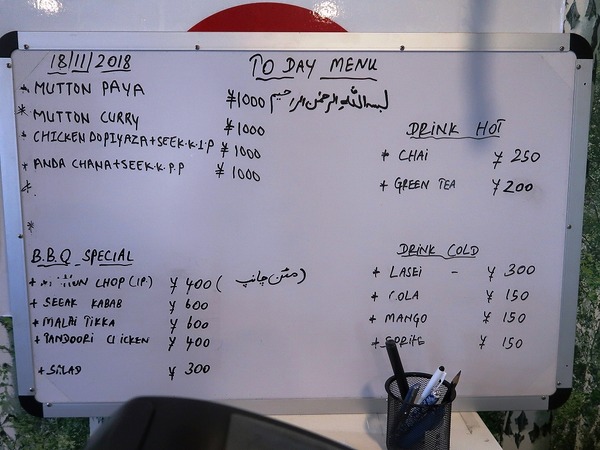 18/11/2018
TO DAY MENU
* MUTTON PAYA ¥1000
بسم الله الرحمن الرحیم
* MUTTON CURRY ¥1000
* CHICKEN DOPIYAZA + SEEK.K.1.P ¥1000
* ANDA CHANA + SEEK.K.P.P ¥1000
*
*
DRINK HOT
* CHAI ¥ 250
+ GREEN TEA ¥ 200
B.B.Q SPECIAL
CHOP (1P.) ¥ 400 ( مٹن چانپ )
+ SEEAK KABAB ¥ 600
+ MALAI TIKKA ¥ 600
+ TANDOORI CLICKEN ¥ 400
+ SILAD ¥ 300
DRINK COLD
+ LASEI - ¥ 300
+ COLA ¥ 150
+ MANGO ¥ 150
+ SPRITE ¥ 150